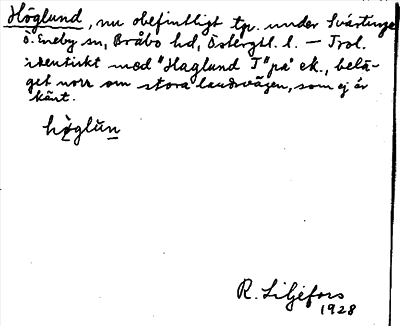 Höglund, nu obefintligt tp. under Svärtinge
Ö. Eneby sn, Bråbo hd, Östergtl. l. — Trol.
identiskt med "Haglund T" på ek., belä-
get norr om stora landsvägen, som ej är
känt.
hö̀glun
R. Liljefors
1928